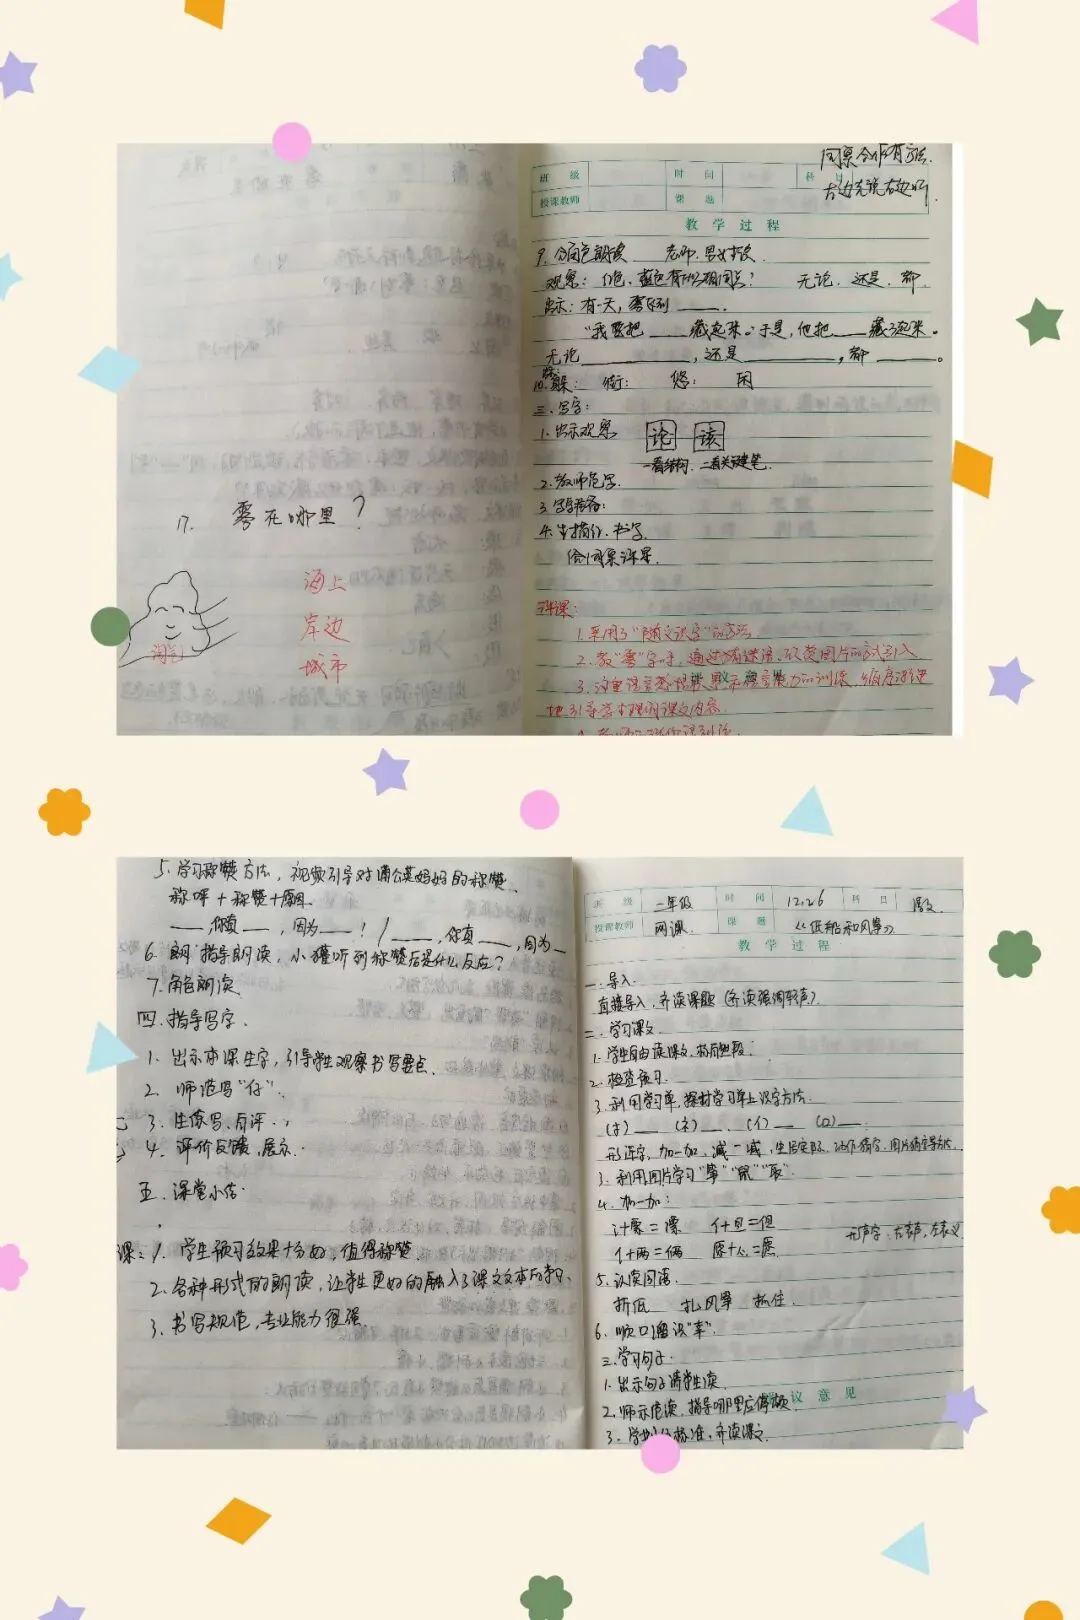 17. 雾在哪里？
淘气
海上
岸边
城市
同桌合作有方法.
左边先说右边听.
班 级 时 间 科 目
授课教师 课 题
教 学 过 程
9. 分角色朗读 老师. 男女
观察: 红色. 蓝色有什么相同点? 无论. 还是. 都.
出示: 有一天, 雾来到____.
"我要把____藏起来。"于是, 他把____藏了起来。
无论____, 还是____, 都____。
10. 躲: 街: 悠: 闲
三. 写字:
1. 出示观察 论 该
一看结构. 二看关键笔.
2. 教师范写.
3. 写字姿势:
4. 生描红. 书写.
给同桌评星.
评课:
1. 采用了"随文识字"的方法.
2. 教"雾"字时, 通过猜谜语, 欣赏图片的方式引入
3. 注重语言表现 语言能力的训练, 循序渐进
地引导学生理解课文内容.
5. 学习称赞方法, 视频引导对蒲公英妈妈的称赞.
称呼 + 称赞 + 原因.
____, 你真____, 因为____! / ____, 你真____, 因为__
6. 指导朗读, 小獾听到称赞后是什么反应?
7. 角色朗读.
四. 指导写字.
1. 出示本课生字, 引导学生观察书写要点.
2. 师范写"仔".
3. 生练写, 自评.
4. 评价反馈, 展示.
五. 课堂小结.
课: 1. 学生预习效果十分好, 值得称赞.
2. 各种形式的朗读, 让学生更好的融入了课文文本
3. 书写规范, 专业能力很强.
班 级 二年级 时 间 12.26 科 目 语文
授课教师 网课 课 题 《纸船和风筝》
教 学 过 程
一. 导入
直接导入, 齐读课题 (齐读强调轻声)
二. 学习课文
1. 学生自由读课文, 标自然段.
2. 检查预习.
3. 利用学习单, 探讨学习单上识字方法.
(扌)__ (礻)__. (亻)__. (口)__.
形近字, 加一加, 减一减, 生活实际, 动作猜字, 图片猜字等方法.
3. 利用图片学习"筝""鼠""辰".
4. 加一加:
氵+票=漂 亻+旦=但
亻+两=俩 原+心=愿
形声字: 右表声, 左表义
5. 认读词语.
折纸 扎风筝 抓住.
6. 顺口溜识"幸".
三. 学习句子.
1. 出示句子请学生读.
2. 师示范读, 指导哪里应停顿.
议 意 见
3. 齐读课文.